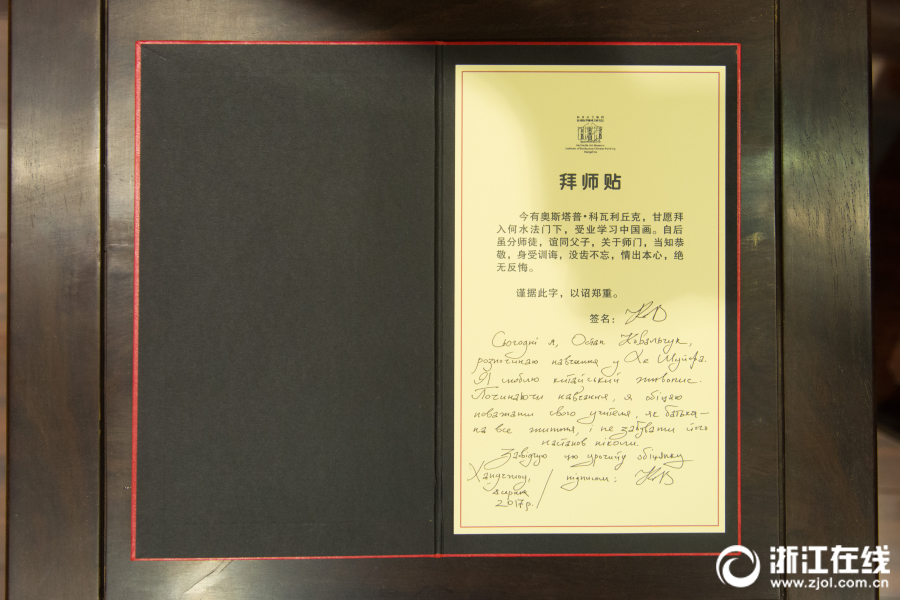 拜师贴
今有奥斯塔普·科瓦利丘克，甘愿拜
入何水法门下，受业学习中国画。自后
虽分师徒，谊同父子，关于师门，当知恭
敬，身受训诲，没齿不忘，情出本心，绝
无反悔。
谨据此字，以诏郑重。
签名：
Сьогодні я, Остап Ковальчук,
розпочинаю навчання у Хе Шуйфа.
Я люблю китайський живопис.
Починаючи навчання, я обіцяю
поважати свого учителя, як батька –
на все життя, і не забувати його
настанов ніколи.
Завіряю цю урочисту обіцянку
підписом:
Ханчжоу,
2017р.
浙江在线
www.zjol.com.cn